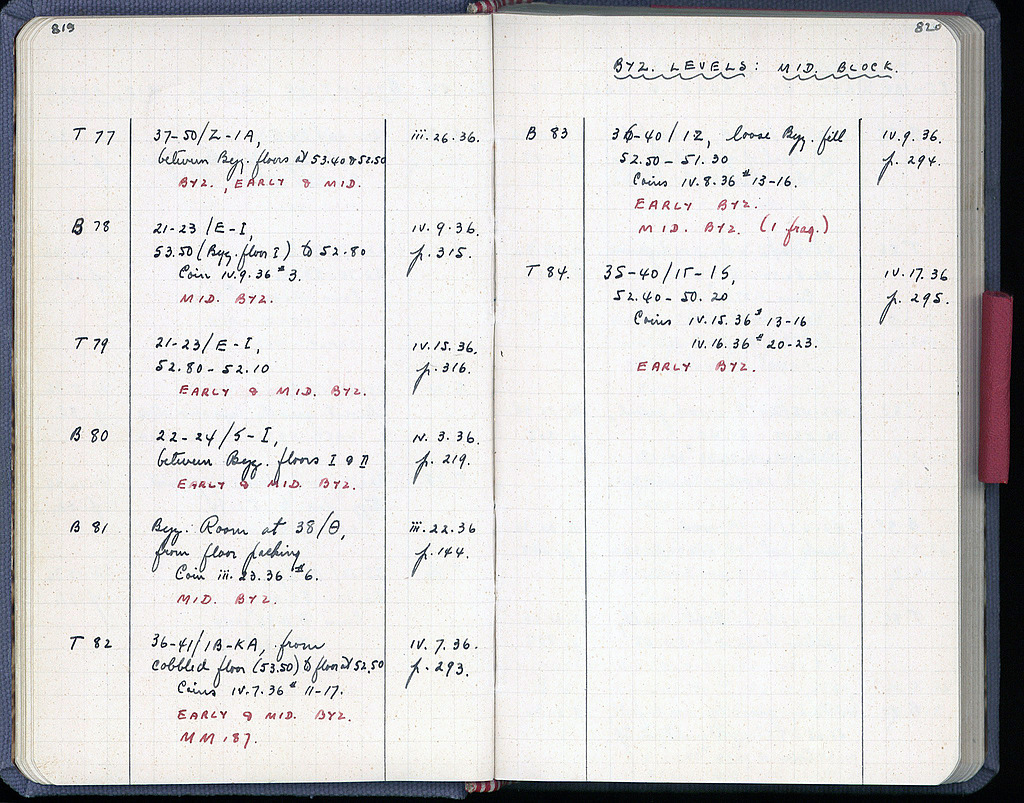 819
T 77 37-50/Z-IA, iii.26.36.
between Byz. floors at 53.40 & 52.50
BYZ., EARLY & MID.
B 78 21-23/E-I, IV.9.36.
53.50 (Byz. floor I) to 52.80 p.315.
Coin IV.9.36 # 3.
MID. BYZ.
T 79 21-23/E-I, IV.15.36.
52.80-52.10 p.316.
EARLY & MID. BYZ.
B 80 22-24/5-I, IV.3.36.
between Byz. floors I & II p.219.
EARLY & MID. BYZ.
B 81 Byz. Room at 38/Θ, iii.22.36
from floor packing p.144.
Coin iii.23.36 #6.
MID. BYZ.
T 82 36-41/IB-KA, from IV.7.36.
cobbled floor (53.50) to floor at 52.50 p.293.
Coins IV.7.36 # 11-17.
EARLY & MID. BYZ.
MM 187.
820
BYZ. LEVELS: MID. BLOCK.
B 83 36-40/IZ, loose Byz. fill IV.9.36.
52.50-51.30 p.294.
Coins IV.8.36 # 13-16.
EARLY BYZ.
MID. BYZ. (1 frag.)
T 84. 35-40/IΓ-15, IV.17.36
52.40-50.20 p.295.
Coins IV.15.36 # 13-16
IV.16.36 # 20-23.
EARLY BYZ.